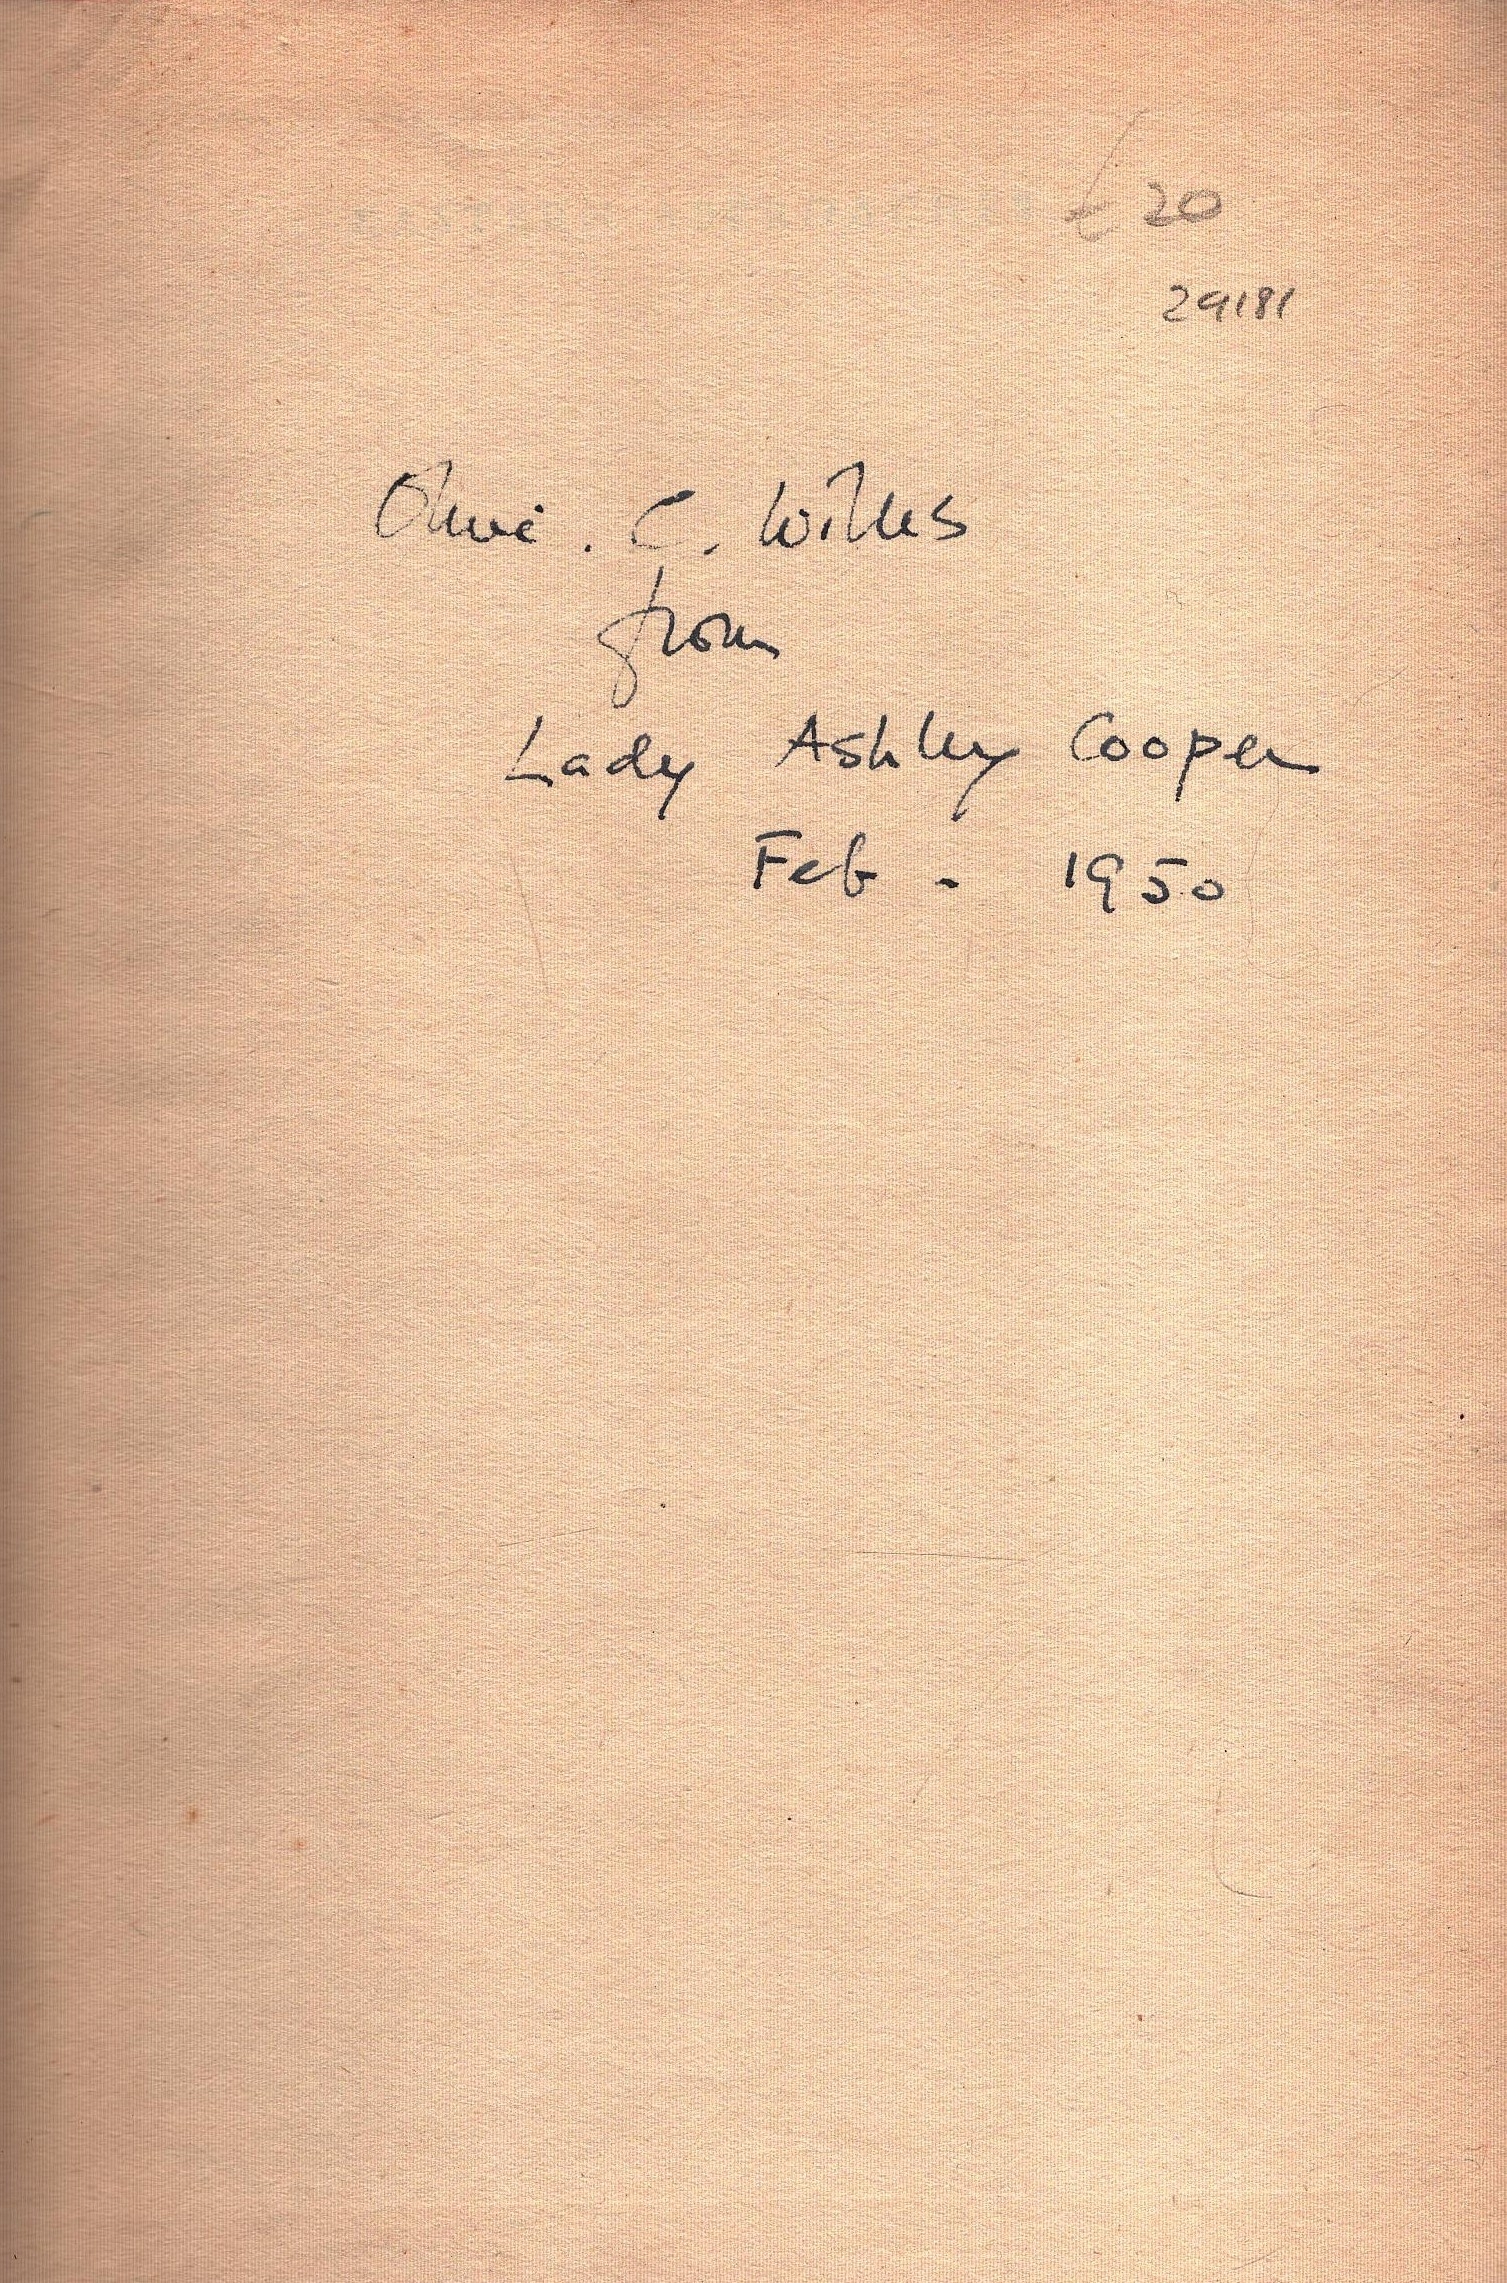 £20
29181
Olive. C. Wilkes
from
Lady Ashley Cooper
Feb - 1950